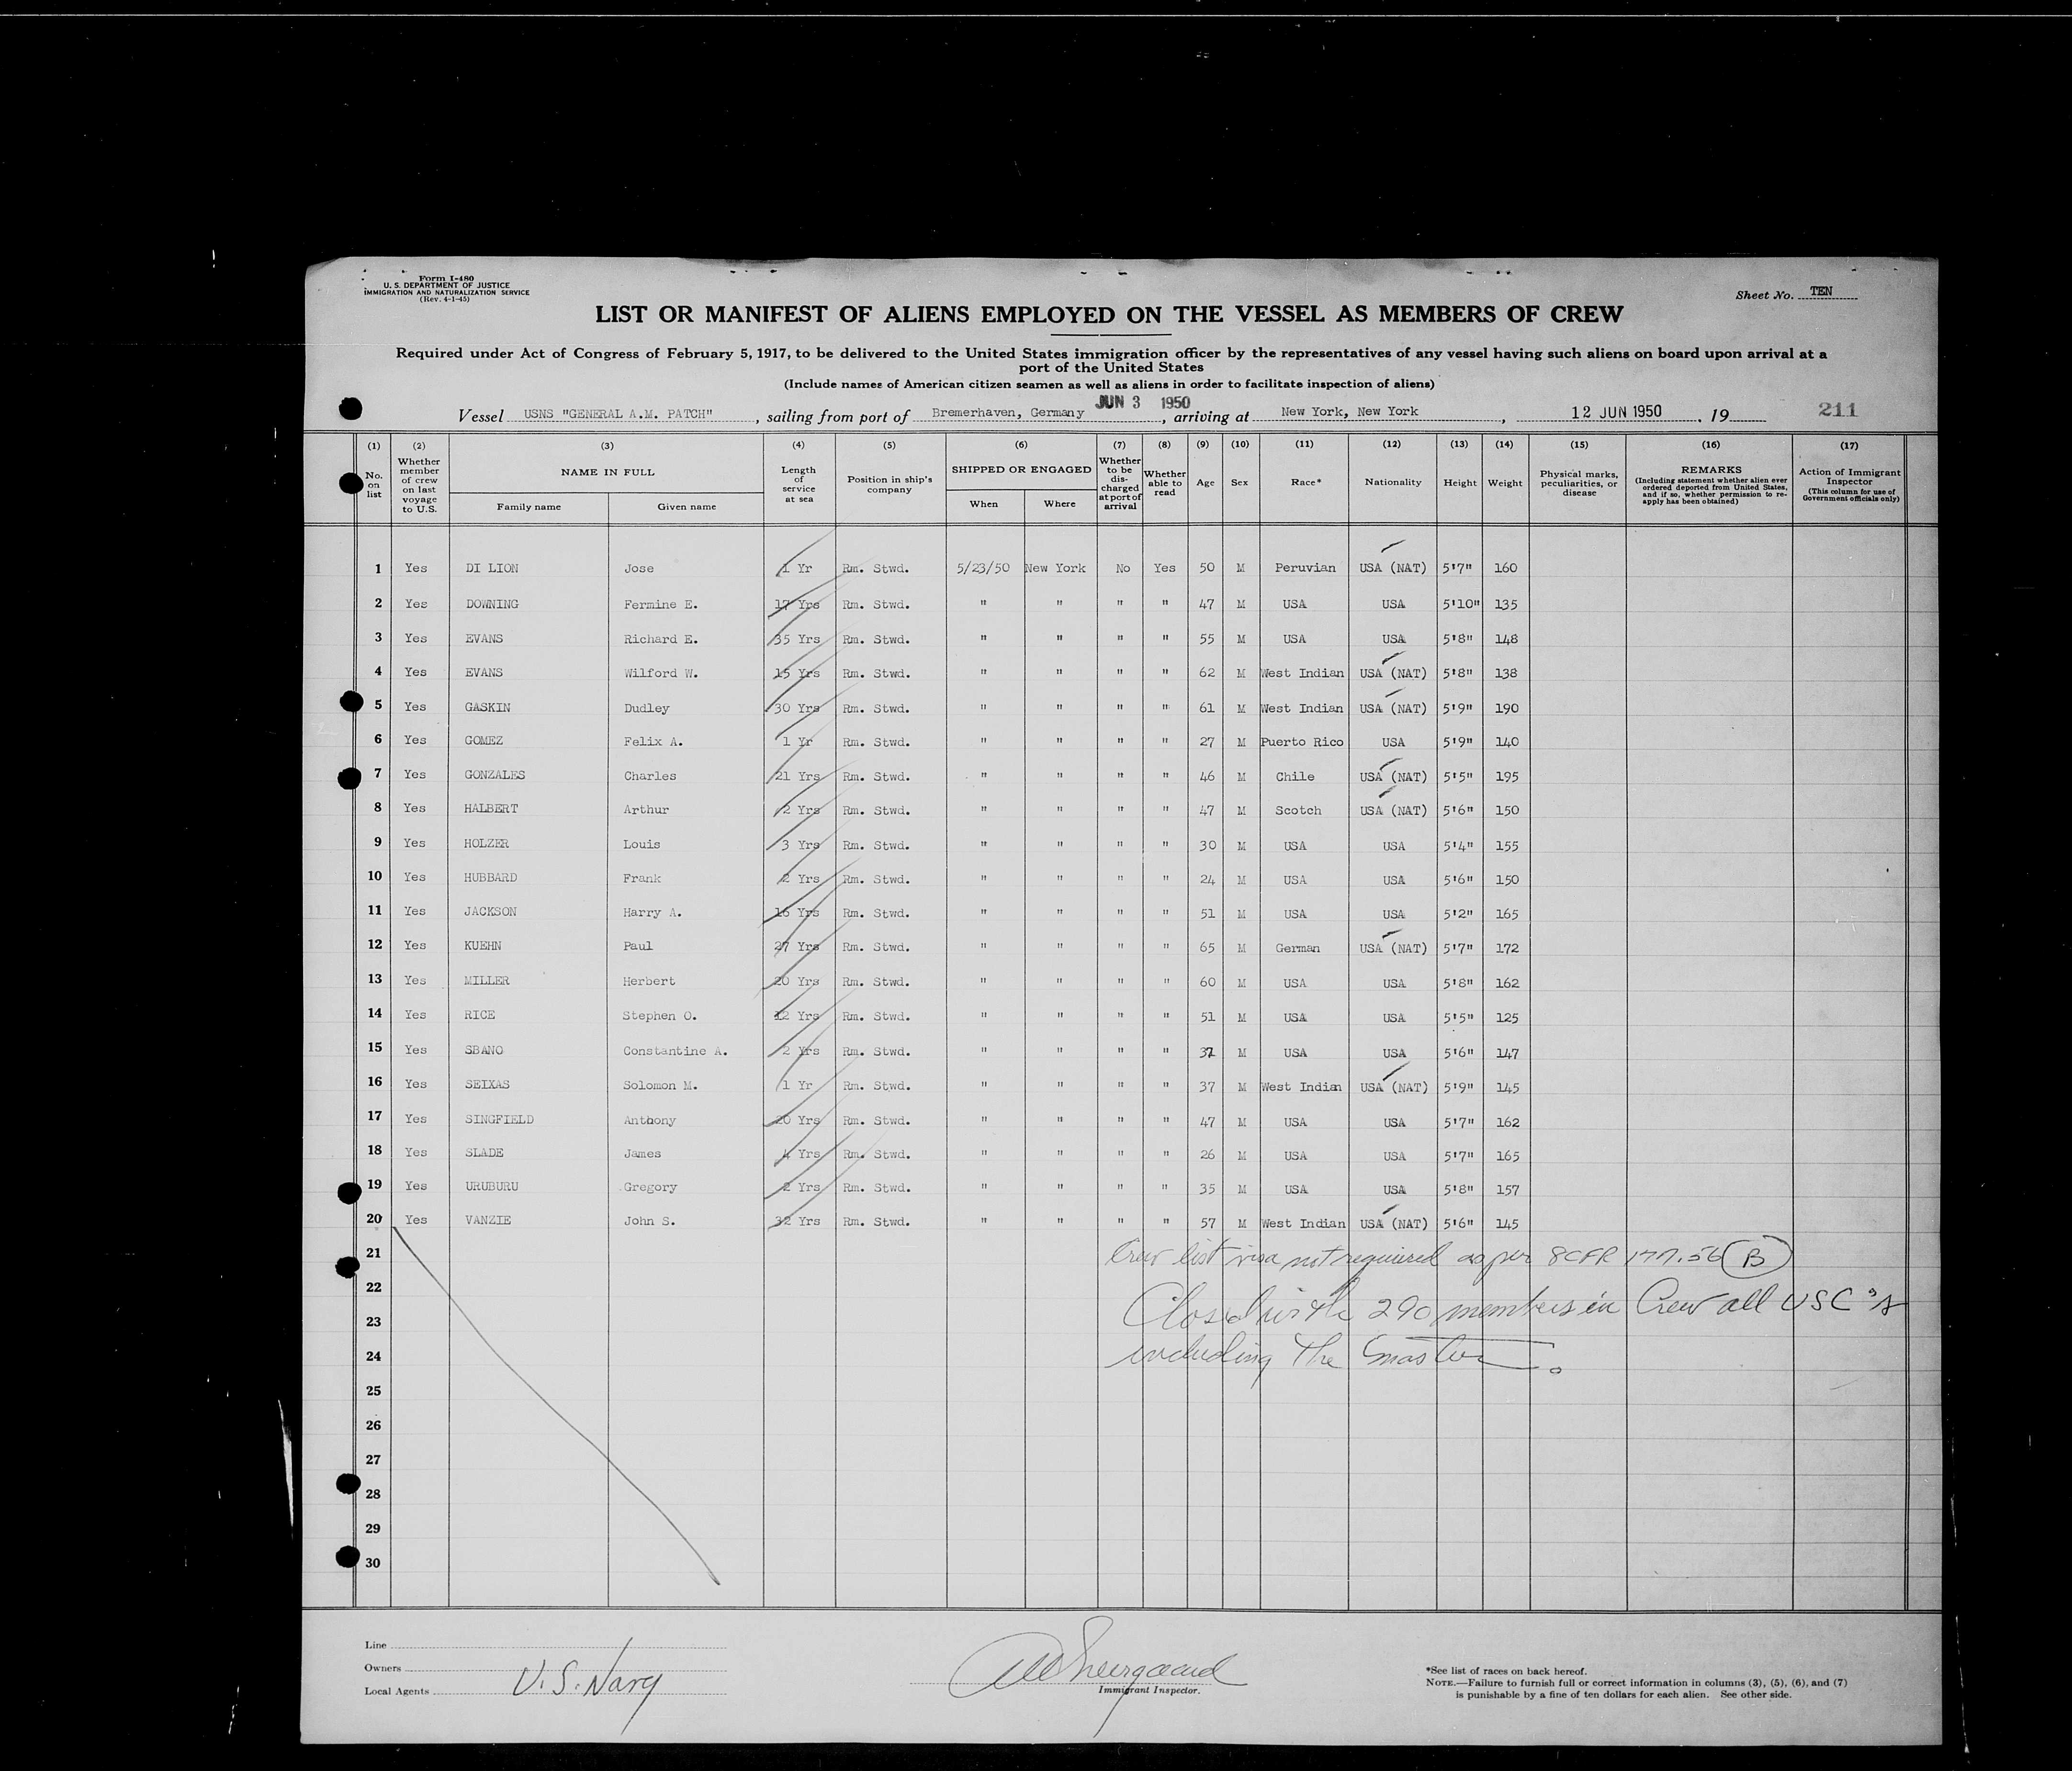 Form I-480
U. S. DEPARTMENT OF JUSTICE
IMMIGRATION AND NATURALIZATION SERVICE
(Rev. 4-1-45)
Sheet No. TEN
LIST OR MANIFEST OF ALIENS EMPLOYED ON THE VESSEL AS MEMBERS OF CREW
Required under Act of Congress of February 5, 1917, to be delivered to the United States immigration officer by the representatives of any vessel having such aliens on board upon arrival at a
port of the United States
(Include names of American citizen seamen as well as aliens in order to facilitate inspection of aliens)
JUN 3 1950
Vessel USNS "GENERAL A.M. PATCH", sailing from port of Bremerhaven, Germany, arriving at New York, New York, 12 JUN 1950, 19 211
(1) (2) (3) (4) (5) (6) (7) (8) (9) (10) (11) (12) (13) (14) (15) (16) (17)
No. on list Whether member of crew on last voyage to U.S. NAME IN FULL Family name Given name Length of service at sea Position in ship's company SHIPPED OR ENGAGED When Where Whether to be discharged at port of arrival Whether able to read Age Sex Race* Nationality Height Weight Physical marks, peculiarities, or disease REMARKS (Including statement whether alien ever ordered deported from United States, and if so, whether permission to re-apply has been obtained) Action of Immigrant Inspector (This column for use of Government officials only)
1 Yes DI LION Jose 1 Yr Rm. Stwd. 5/23/50 New York No Yes 50 M Peruvian USA (NAT) 5'7" 160
2 Yes DOWNING Fermine E. 17 Yrs Rm. Stwd. " " " " 47 M USA USA 5'10" 135
3 Yes EVANS Richard E. 35 Yrs Rm. Stwd. " " " " 55 M USA USA 5'8" 148
4 Yes EVANS Wilford W. 15 Yrs Rm. Stwd. " " " " 62 M West Indian USA (NAT) 5'8" 138
5 Yes GASKIN Dudley 30 Yrs Rm. Stwd. " " " " 61 M West Indian USA (NAT) 5'9" 190
6 Yes GOMEZ Felix A. 1 Yr Rm. Stwd. " " " " 27 M Puerto Rico USA 5'9" 140
7 Yes GONZALES Charles 21 Yrs Rm. Stwd. " " " " 46 M Chile USA (NAT) 5'5" 195
8 Yes HALBERT Arthur 2 Yrs Rm. Stwd. " " " " 47 M Scotch USA (NAT) 5'6" 150
9 Yes HOLZER Louis 3 Yrs Rm. Stwd. " " " " 30 M USA USA 5'4" 155
10 Yes HUBBARD Frank 2 Yrs Rm. Stwd. " " " " 24 M USA USA 5'6" 150
11 Yes JACKSON Harry A. 16 Yrs Rm. Stwd. " " " " 51 M USA USA 5'2" 165
12 Yes KUEHN Paul 27 Yrs Rm. Stwd. " " " " 65 M German USA (NAT) 5'7" 172
13 Yes MILLER Herbert 20 Yrs Rm. Stwd. " " " " 60 M USA USA 5'8" 162
14 Yes RICE Stephen O. 12 Yrs Rm. Stwd. " " " " 51 M USA USA 5'5" 125
15 Yes SBANO Constantine A. 2 Yrs Rm. Stwd. " " " " M USA USA 5'6" 147
16 Yes SEIXAS Solomon M. 1 Yr Rm. Stwd. " " " " 37 M West Indian USA (NAT) 5'9" 145
17 Yes SINGFIELD Anthony 20 Yrs Rm. Stwd. " " " " 47 M USA USA 5'7" 162
18 Yes SLADE James 4 Yrs Rm. Stwd. " " " " 26 M USA USA 5'7" 165
19 Yes URUBURU Gregory 2 Yrs Rm. Stwd. " " " " 35 M USA USA 5'8" 157
20 Yes VANZIE John S. 32 Yrs Rm. Stwd. " " " " 57 M West Indian USA (NAT) 5'6" 145
21 Crew list visa not required as per 8CFR 177.56 (B)
22
23 Closed with 290 members in Crew all USC's
24 including the master.
25
26
27
28
29
30
Line
Owners
Local Agents U.S. Navy
Immigrant Inspector.
*See list of races on back hereof.
NOTE.—Failure to furnish full or correct information in columns (3), (5), (6), and (7)
is punishable by a fine of ten dollars for each alien. See other side.